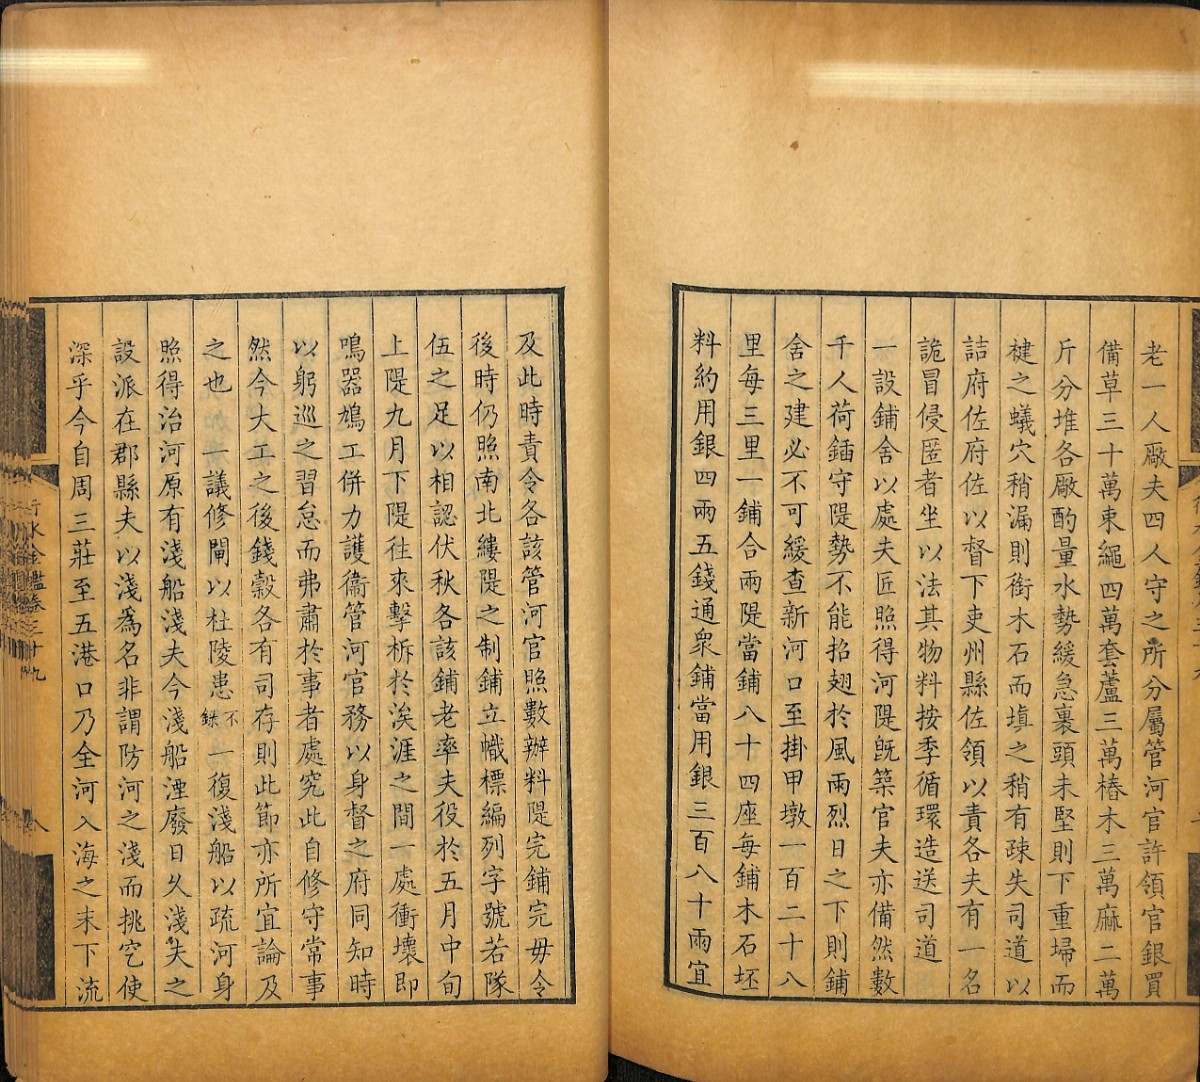 老一人廠夫四人守之所分屬管河官許領官銀買
備草三十萬束繩四萬套蘆三萬樁木三萬麻二萬
斤分堆各廠酌量水勢緩急裹頭未堅則下重埽而
楗之蟻穴稍漏則銜木石而填之稍有疎失司道以
詰府佐府佐以督下吏州縣佐領以責各夫有一名
詭冒侵匿者坐以法其物料按季循環造送司道
一設鋪舍以處夫匠照得河隄旣築官夫亦備然數
千人荷鍤守隄勢不能招翅於風雨烈日之下則鋪
舍之建必不可緩查新河口至掛甲墩一百二十八
里每三里一鋪合兩隄當鋪八十四座每鋪木石坯
料約用銀四兩五錢通衆鋪當用銀三百八十兩宜
及此時責令各該管河官照數辦料隄完鋪完毋令
後時仍照南北縷隄之制鋪立幟標編列字號若隊
伍之足以相認伏秋各該鋪老率夫役於五月中旬
上隄九月下隄往來擊柝於涘涯之間一處衝壞即
鳴器鳩工併力護衞管河官務以身督之府同知時
以躬巡之習怠而弗肅於事者處究此自修守常事
然今大工之後錢穀各有司存則此節亦所宜論及
之也 一議修閘以杜陵患不錄 一復淺船以疏河身
照得治河原有淺船淺夫今淺船湮廢日久淺夫之
設派在郡縣夫以淺爲名非謂防河之淺而挑空使
深乎今自周三莊至五港口乃全河入海之末下流
行水金鑑卷三十九
八